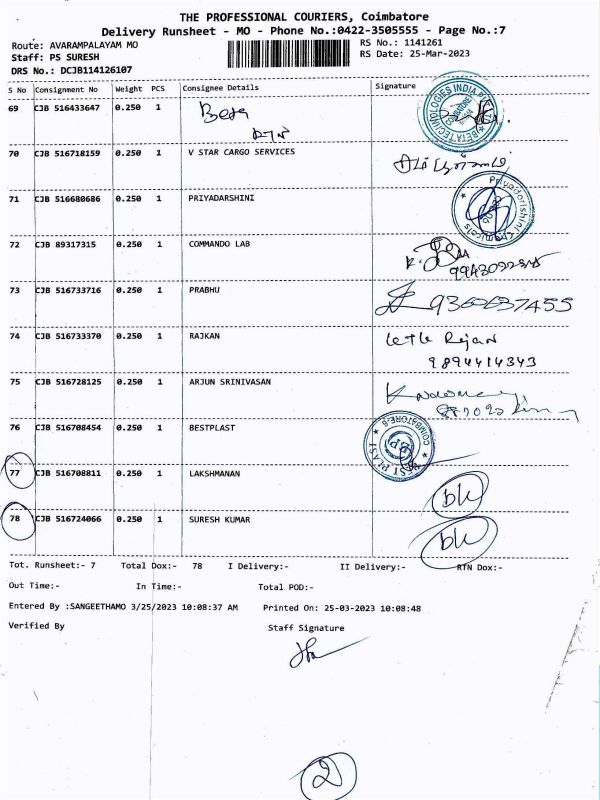 THE PROFESSIONAL COURIERS, Coimbatore
Delivery Runsheet - MO - Phone No.:0422-3505555 - Page No.:7
Route: AVARAMPALAYAM MO
RS No.: 1141261
Staff: PS SURESH
RS Date: 25-Mar-2023
DRS No.: DCJB114126107
S No Consignment No Weight PCS Consignee Details Signature
69 CJB 516433647 0.250 1 Beta
70 CJB 516718159 0.250 1 V STAR CARGO SERVICES
71 CJB 516680686 0.250 1 PRIYADARSHINI
Priyadarshini Chemicals
72 CJB 89317315 0.250 1 COMMANDO LAB
73 CJB 516733716 0.250 1 PRABHU
9360637455
74 CJB 516733370 0.250 1 RAJKAN
Rajan
9894414343
75 CJB 516728125 0.250 1 ARJUN SRINIVASAN
76 CJB 516708454 0.250 1 BESTPLAST
BEST PLAST COIMBATORE-6
77 CJB 516708811 0.250 1 LAKSHMANAN
78 CJB 516724066 0.250 1 SURESH KUMAR
Tot. Runsheet:- 7 Total Dox:- 78 I Delivery:- II Delivery:- RTN Dox:-
Out Time:- In Time:- Total POD:-
Entered By :SANGEETHAMO 3/25/2023 10:08:37 AM Printed On: 25-03-2023 10:08:48
Verified By Staff Signature
2